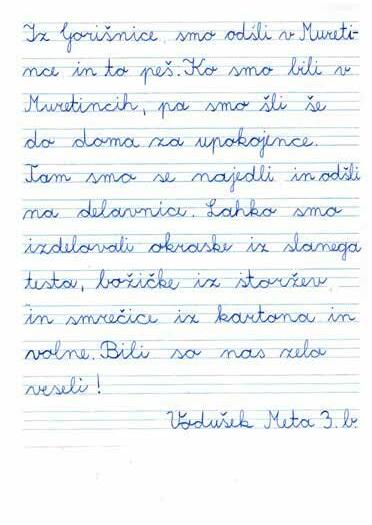 Iz Gorišnice smo odšli v Mureti-
nce in to peš. Ko smo bili v
Muretincih, pa smo šli še
do doma za upokojence.
Tam smo se najedli in odšli
na delavnice. Lahko smo
izdelovali okraske iz slanega
testa, božičke iz storžev
in smrečice iz kartona in
volne. Bili so nas zelo
veseli!
Vodušek Meta 3. b.